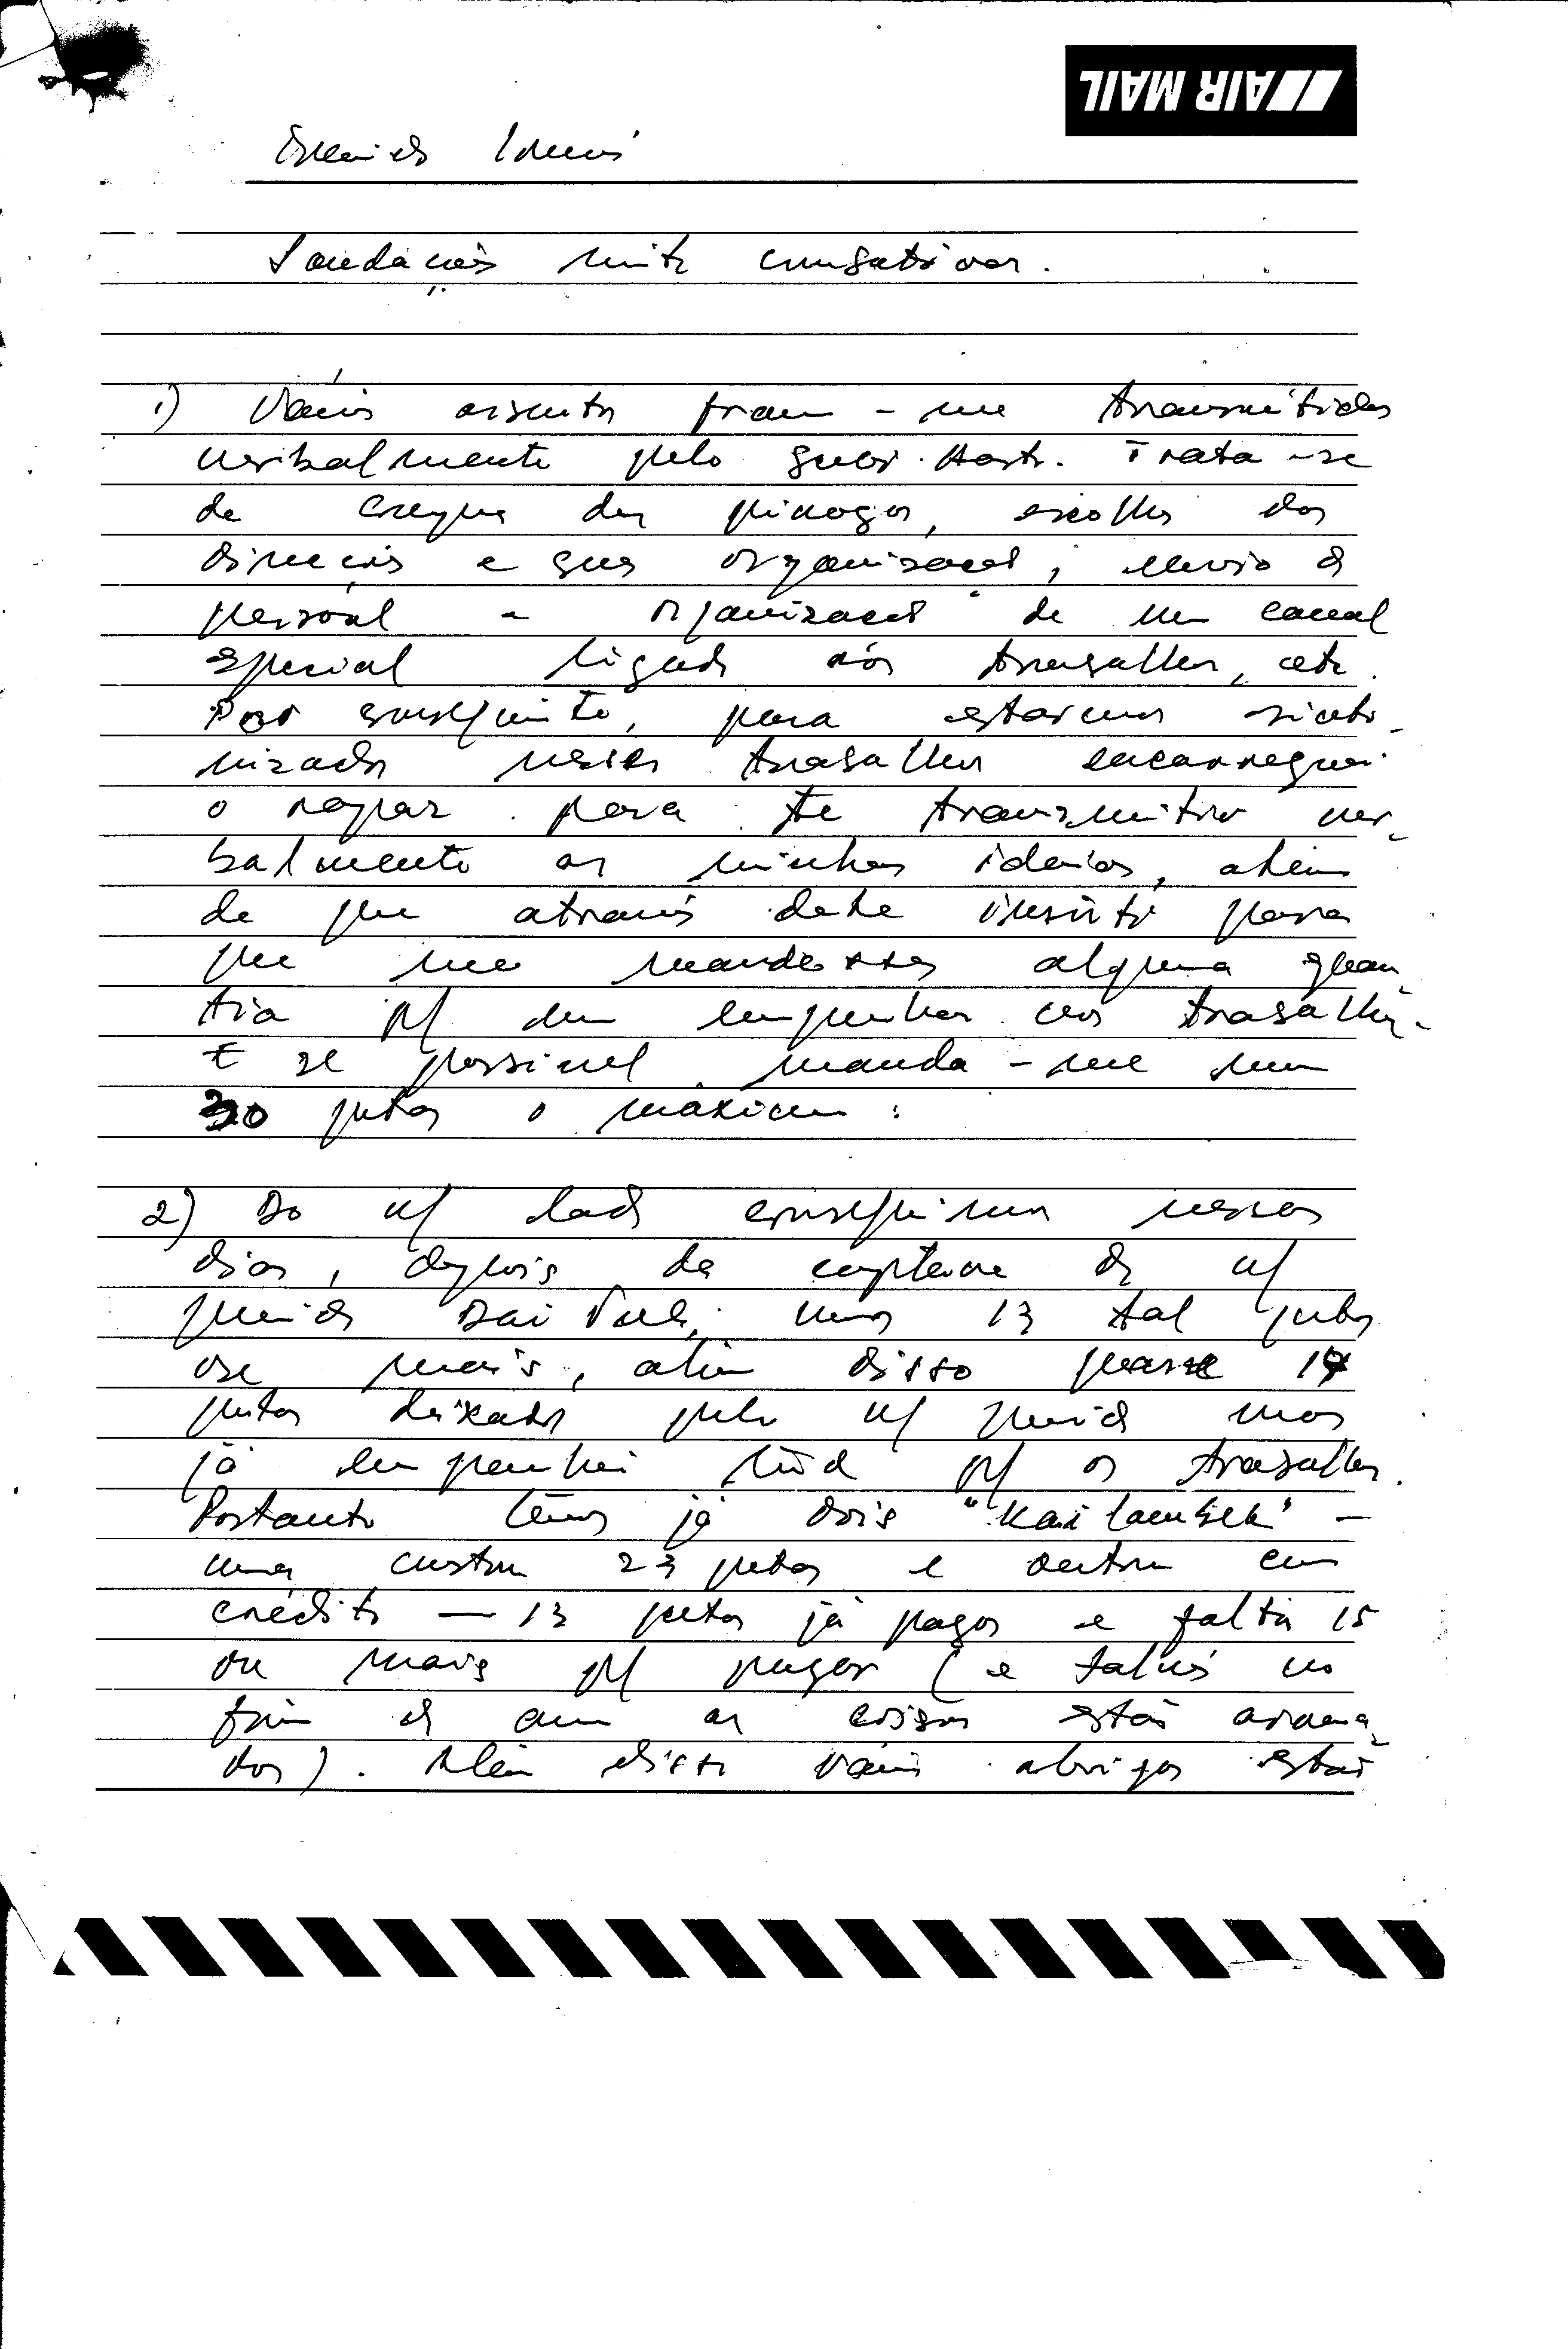 AIR MAIL
Irmão
Saudações muito combativas.
1) Vários assuntos foram-me transmitidos
verbalmente pelo guer. Trata-se
de das escolha dos
direcções e sua organização, envio de
pessoal e organização de um canal
especial ligado aos trabalhos, etc.
Por conseguinte, para estarmos sinto-
nizados nesses trabalhos encarreguei
o rapaz para te transmitir ver-
balmente as minhas ideias, além
de que através deste insisto para
que me mandasses alguma quan-
tia p/ dar empenho nos trabalhos.
E se possível manda-me um
30 jutas o máximo:
2) Do n/ lado conseguimos nesses
dias, depois da captura do n/
querido uns 13 tal jutas
ou mais, além disso quase 14
jutas deixados pelo n/ querido mas
já empenhei tudo p/ os trabalhos.
Portanto temos já dois " " -
uma custou 23 jutas e outro em
crédito — 13 jutas já pagos e falta 15
ou mais p/ pagar (e talvez no
fim do ano as coisas estão arruma-
das). Além disso vários abrigos estão